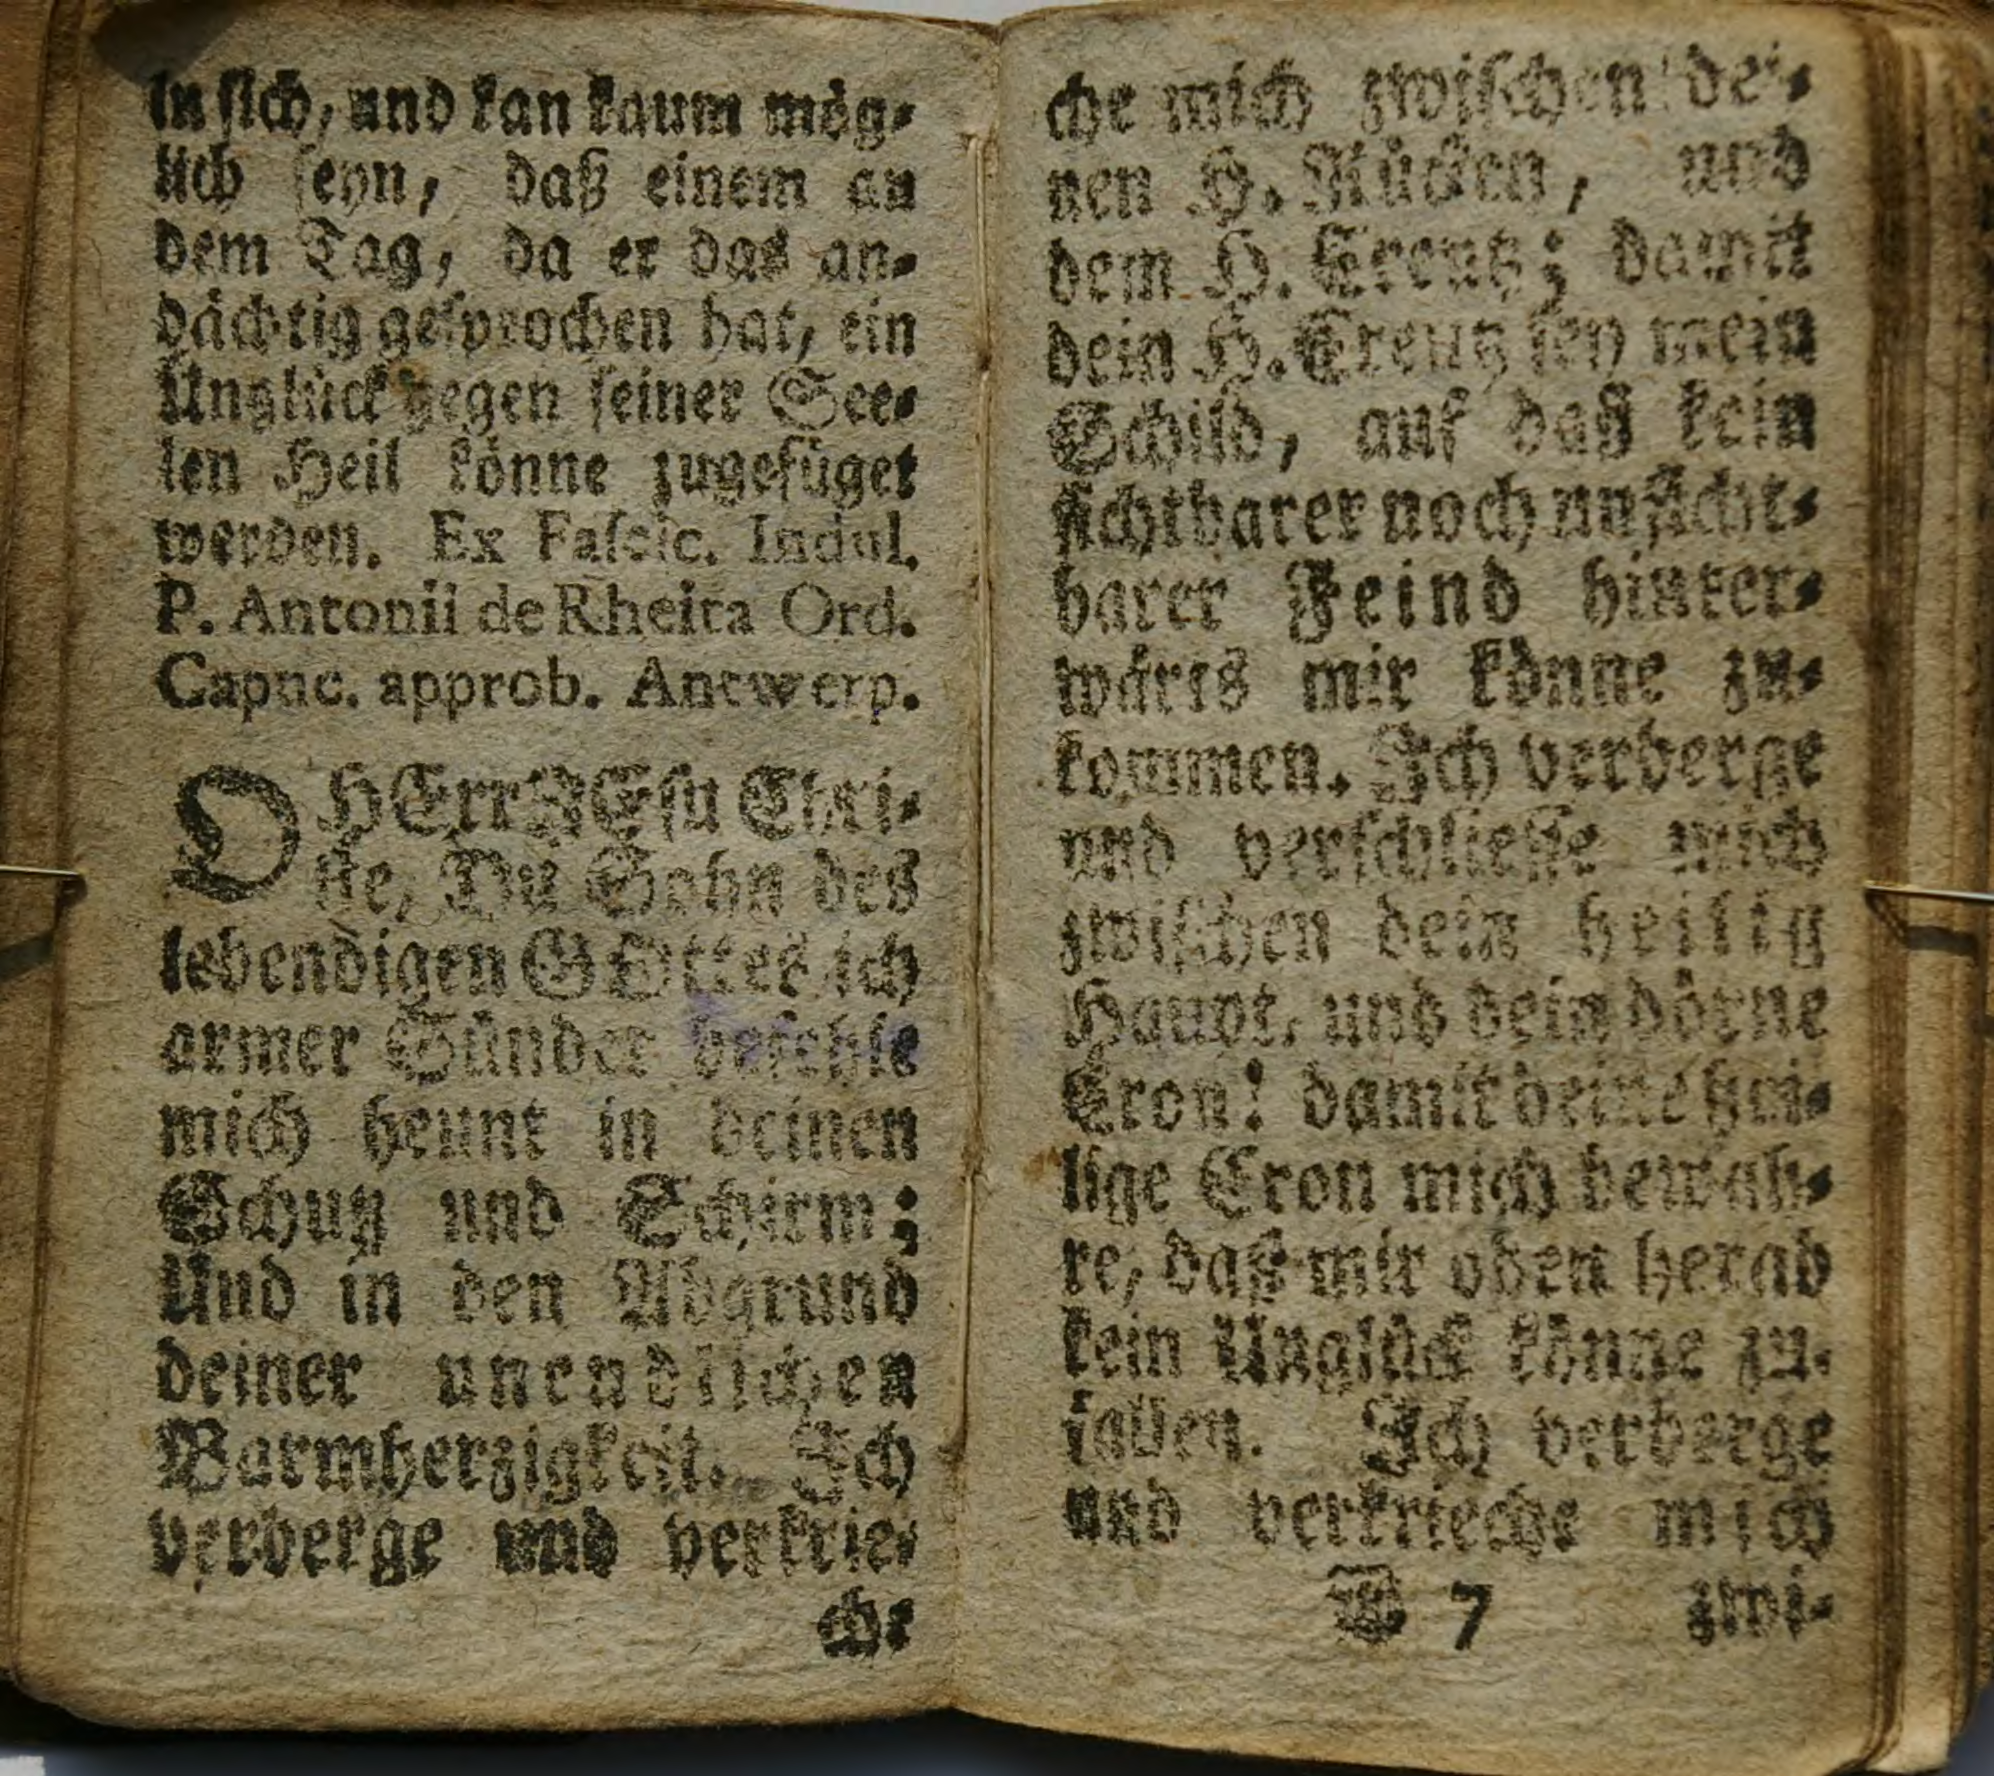 in sich, und kan kaum mög-
lich seyn, daß einem an
dem Tag, da er das an-
dächtig gesprochen hat, ein
Unglück gegen seiner See-
len Heil könne zugefüget
werden. Ex Fascic. Indul.
P. Antonii de Rheita Ord.
Capuc. approb. Antwerp.
O HErr JEsu Chri-
ste, Du Sohn des
lebendigen GOttes ich
armer Sünder befehle
mich heunt in deinen
Schutz und Schirm;
Und in den Abgrund
deiner unendlichen
Barmherzigkeit. Ich
verberge und verkrie-
che
che mich zwischen dei-
nen H. Rücken, und
dem H. Creutz; damit
dein H. Creutz sey mein
Schild, auf daß kein
sichtbarer noch unsicht-
barer Feind hinter-
wärts mir könne zu-
kommen. Ich verberge
und verschliesse mich
zwischen dein heilig
Haupt, und dein dörne
Cron! damit deine hei-
lige Cron mich bewah-
re, daß mir oben herab
kein Unglück könne zu-
fallen. Ich verberge
und verkrieche mich
B 7 zwi-